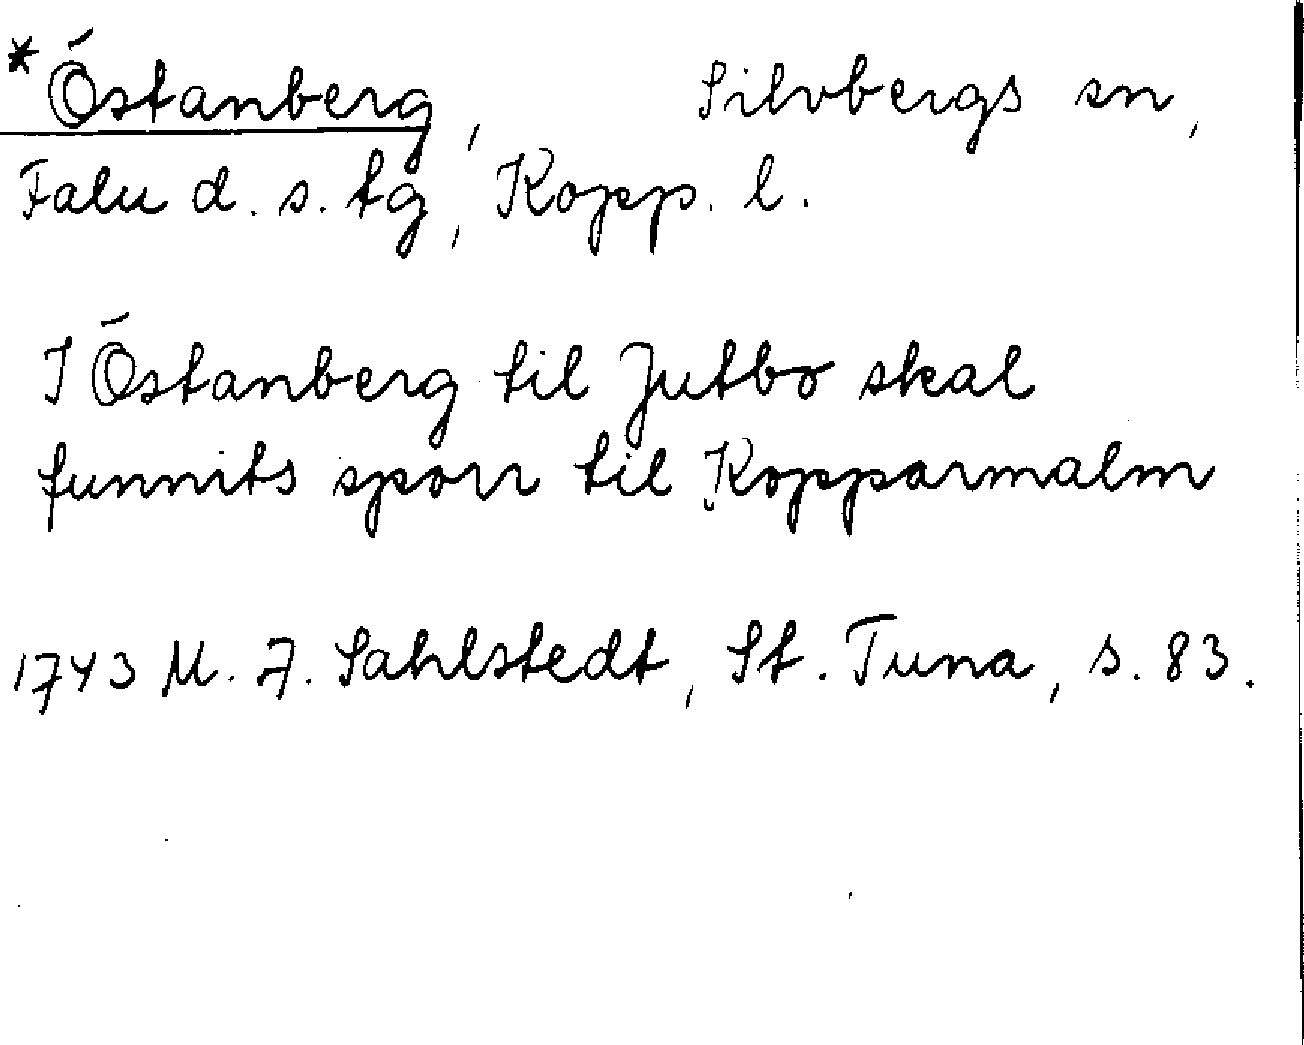 *Östanberg, Silvbergs sn,
Falu d. s. tg, Kopp. l.
I Östanberg til Jutbo skal
funnits sporr til Kopparmalm
1743 M. A. Sahlstedt, St. Tuna, s. 83.